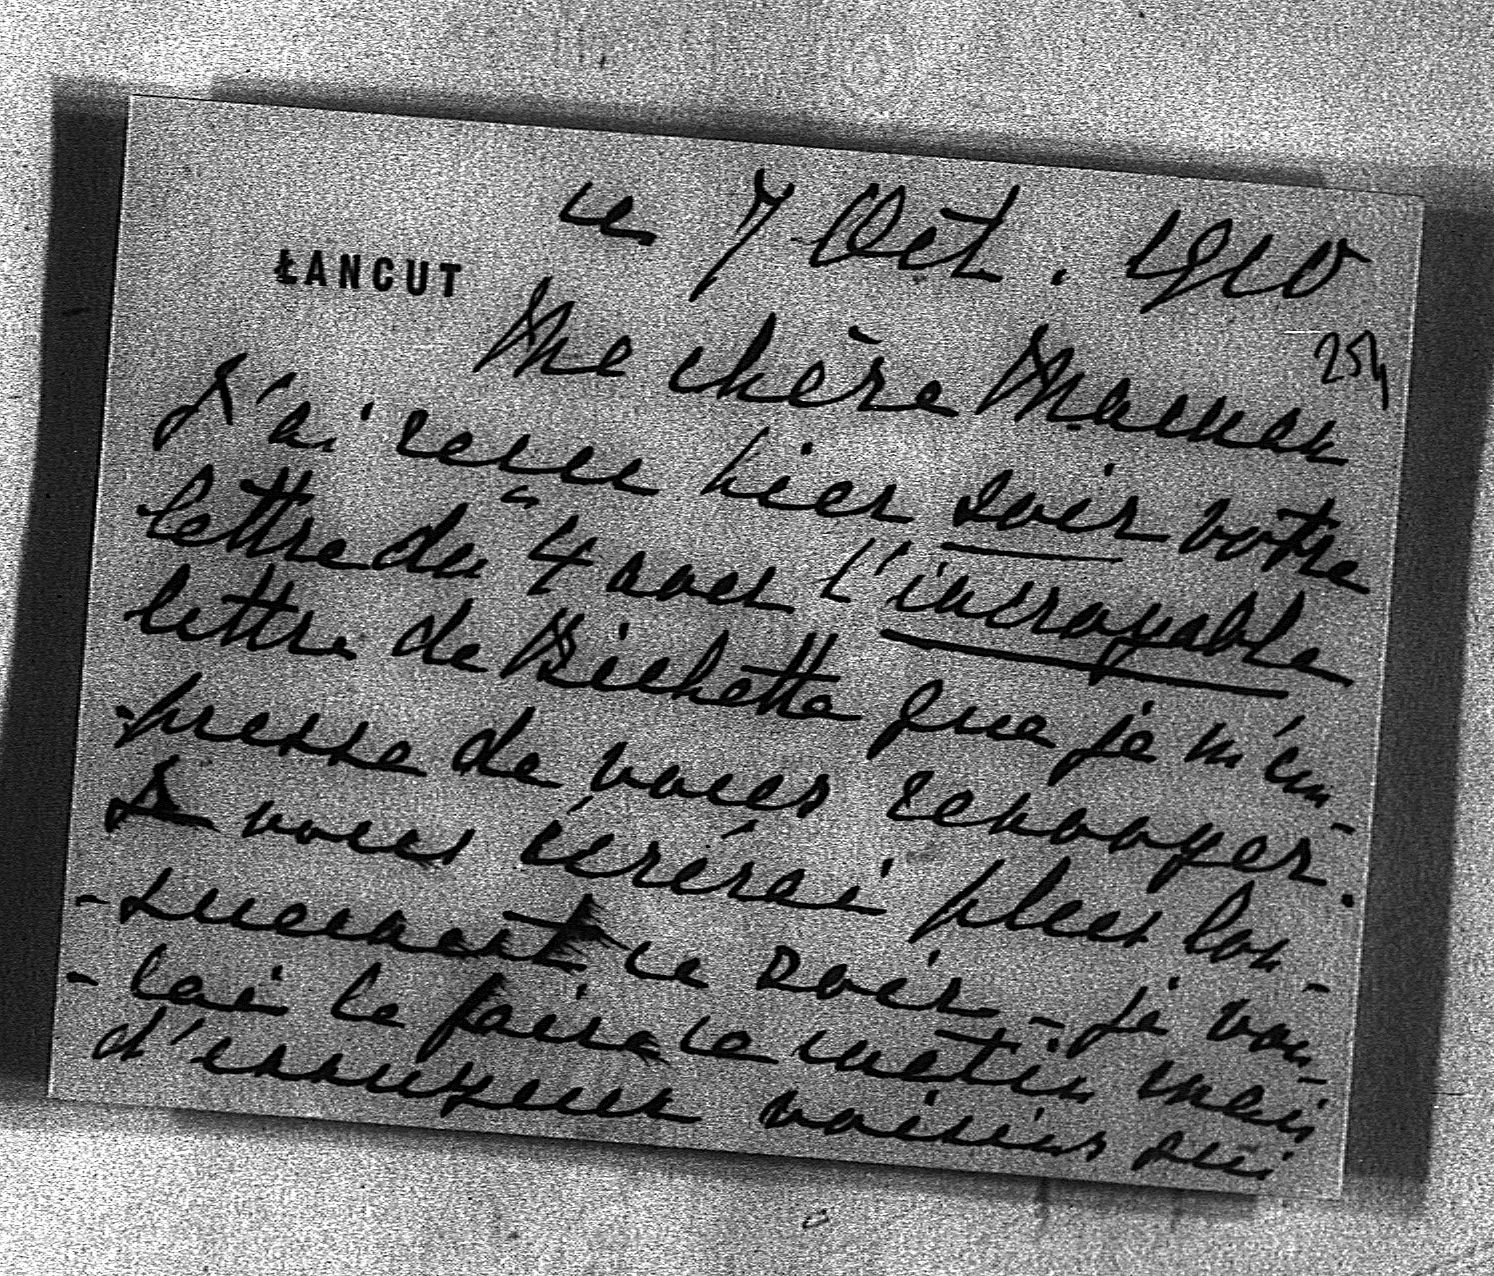 ce 7 Oct. 1910
ŁANCUT
254
Ma chère Maman
J'ai reçu hier soir votre
lettre du 4 avec l'incroyable
lettre de Bichette que je m'em-
-presse de vous renvoyer.
Je vous écrérai plus lon-
-guement ce soir - je vou-
-lai le faire ce matin mais
d'ennuyeux voisins qui